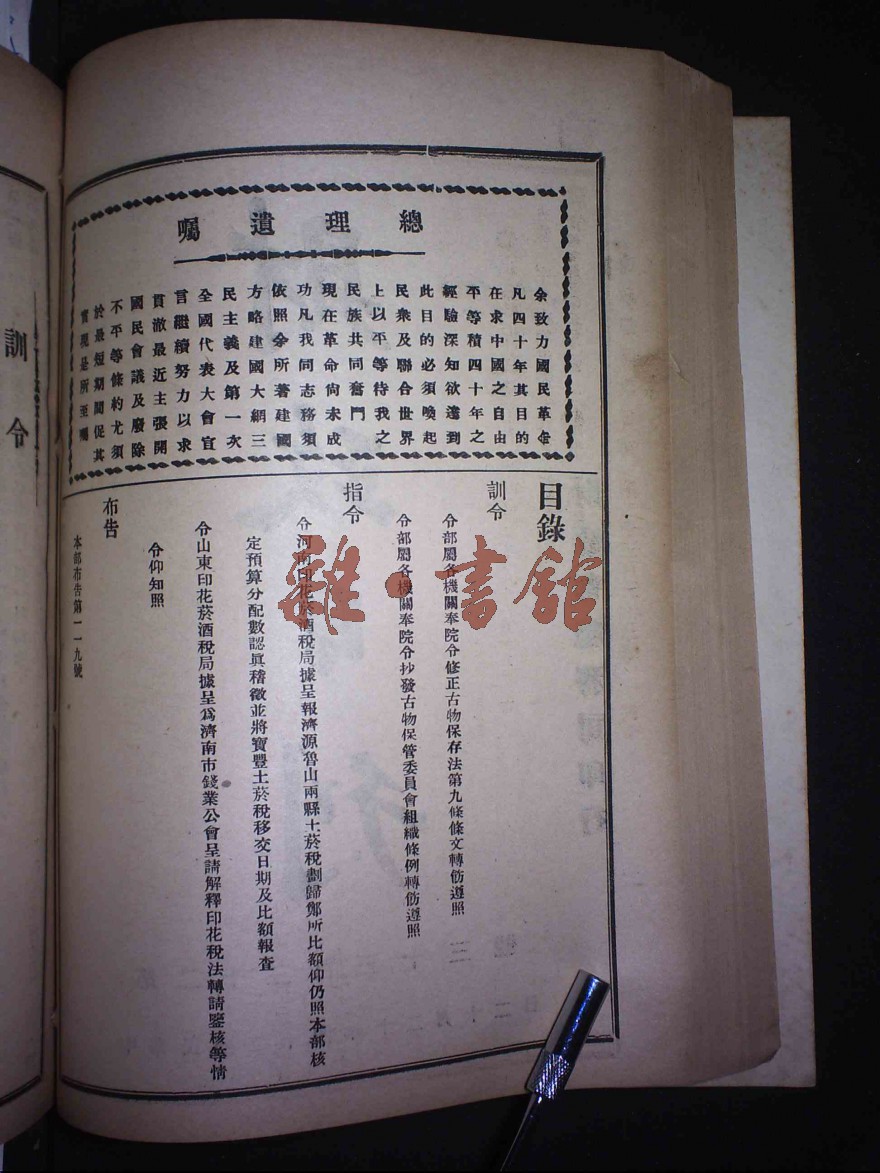 總理遺囑
余致力國民革命
凡四十年其目的
在求中國之自由
平等積四十年之
經驗深知欲達到
此目的必須喚起
民衆及聯合世界
上以平等待我之
民族共同奮鬥
現在革命尙未成
功凡我同志務須
依照余所著建國
方略建國大綱三
民主義及第一次
全國代表大會宣
言繼續努力以求
貫澈最近主張開
國民會議及廢除
不平等條約尤須
於最短期間促其
實現是所至囑
目錄
訓令
令部屬各機關奉院令修正古物保存法第九條條文轉飭遵照
令部屬各機關奉院令抄發古物保管委員會組織條例轉飭遵照
指令
令河南印花菸酒稅局據呈報濟源魯山兩縣土菸稅劃歸鄭所比額仰仍照本部核
定預算分配數認眞稽徵並將寶豐土菸稅移交日期及比額報查
令山東印花菸酒稅局據呈爲濟南市錢業公會呈請解釋印花稅法轉請鑒核等情
令仰知照
布告
本部布告第一一九號
訓令
雜·書館